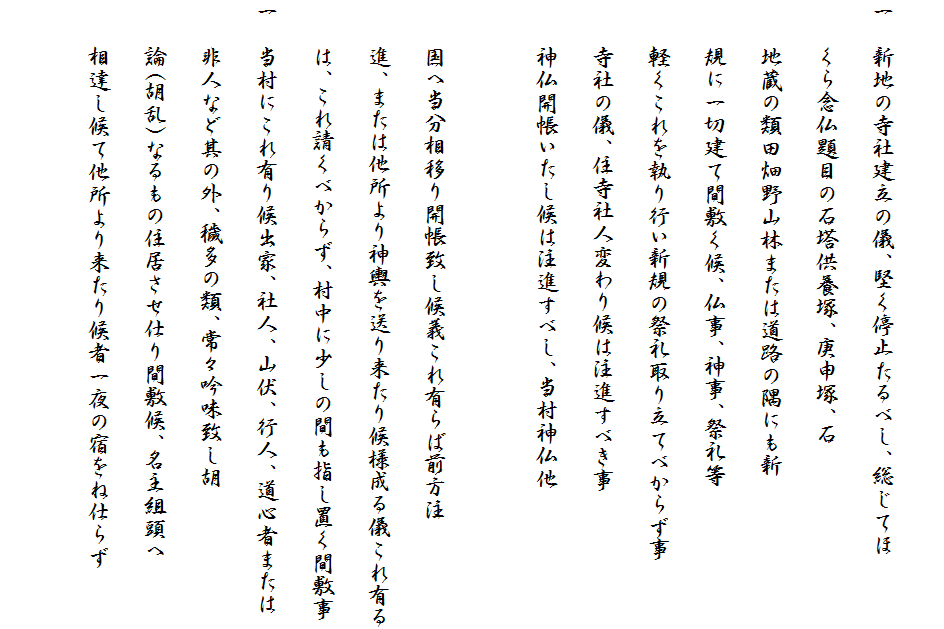 一　新地の寺社建立の儀、堅く停止たるべし、総じてほ
くら念仏題目の石塔供養塚、庚申塚、石
地蔵の類田畑野山林または道路の隅にも新
規に一切建て間敷く候、仏事、神事、祭礼等
軽くこれを執り行い新規の祭礼取り立てべからず事
寺社の儀、住寺社人変わり候は注進すべき事
神仏開帳いたし候は注進すべし、当村神仏他
国へ当分相移り開帳致し候義これ有らば前方注
進、または他所より神輿を送り来たり候様成る儀これ有る
は、これ請くべからず、村中に少しの間も指し置く間敷事
一　当村にこれ有り候出家、社人、山伏、行人、道心者または
非人など其の外、穢多の類、常々吟味致し胡
論(胡乱)なるもの住居させ仕り間敷候、名主組頭へ
相達し候て他所より来たり候者一夜の宿をね仕らず